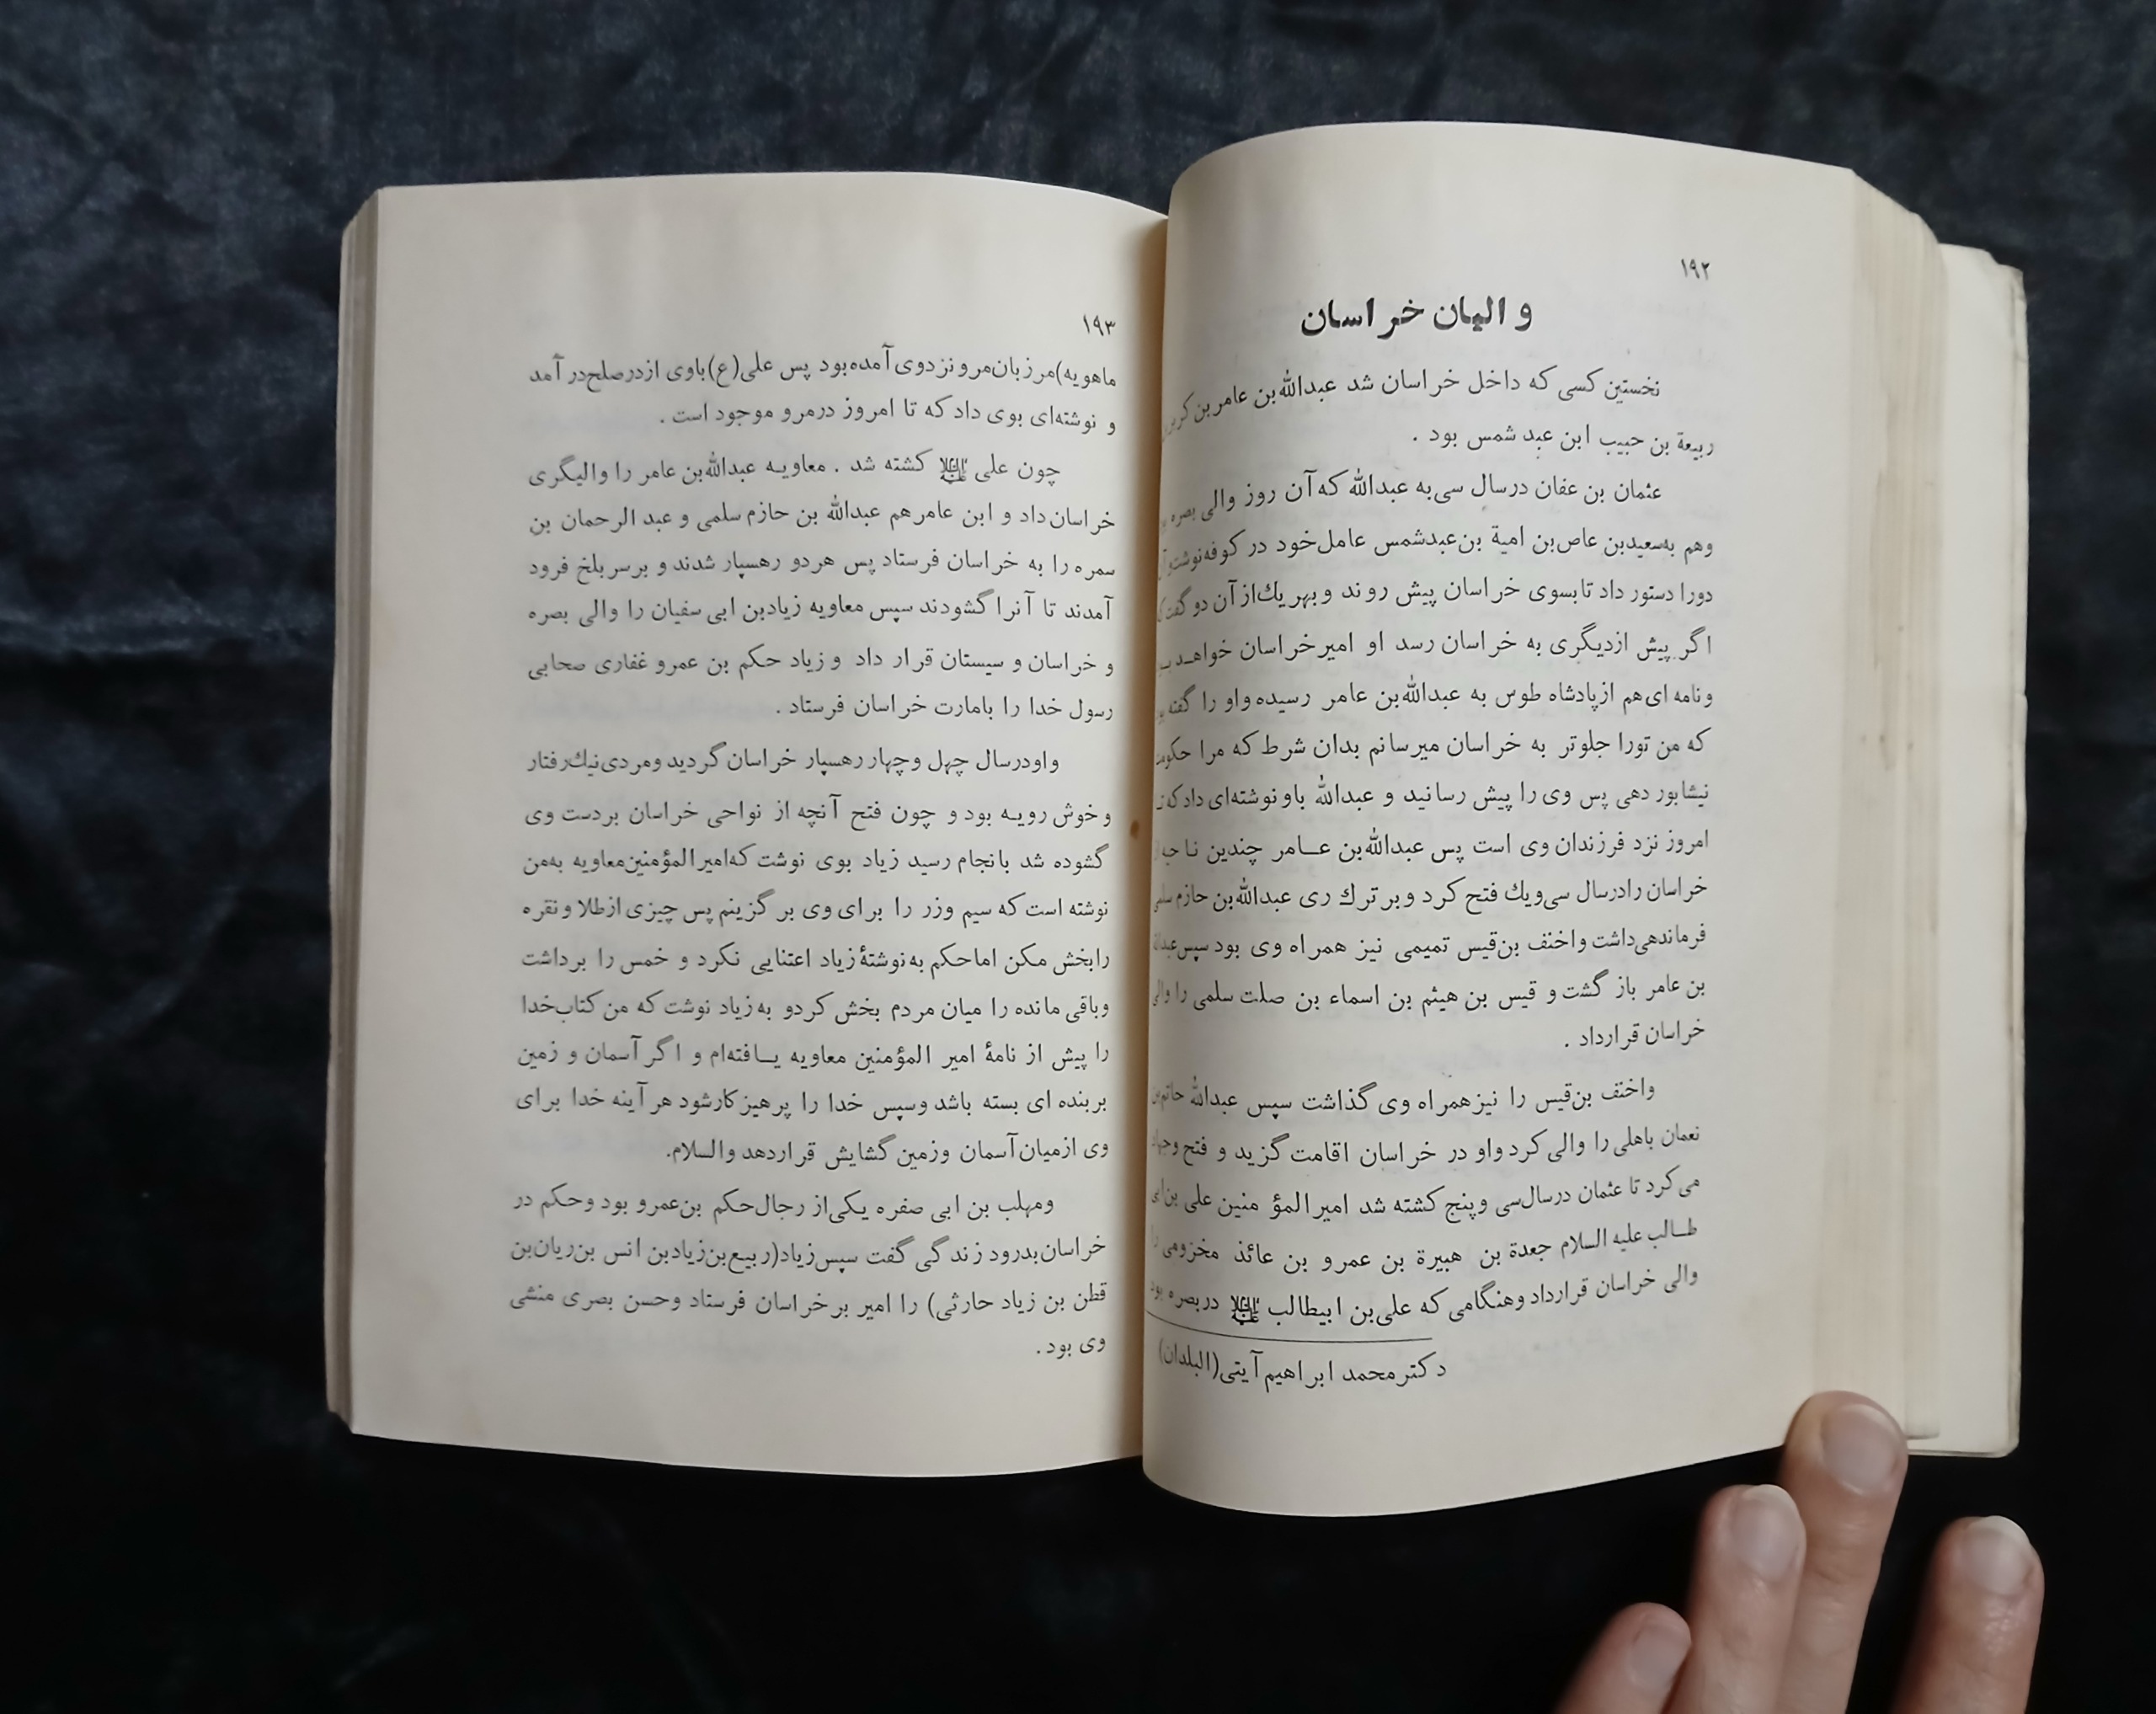 ۱۹۲
والیان خراسان
نخستین کسی که داخل خراسان شد عبدالله‌بن عامر بن
ربیعة بن حبیب ابن عبد شمس بود .
عثمان بن عفان درسال سی به عبدالله که آن روز والی بصره
وهم به‌سعیدبن عاص‌بن امیة بن‌عبدشمس عامل‌خود در کوفه‌نوشت
دورا دستور داد تابسوی خراسان پیش روند و بهر یك‌از آن دو گفت
اگر پیش ازدیگری به خراسان رسد او امیرخراسان خواهد
ونامه ای‌هم ازپادشاه طوس به عبدالله‌بن عامر رسیده واو را گفته
که من تورا جلوتر به خراسان میرسانم بدان شرط که مرا حکومت
نیشابور دهی پس وی را پیش رسانید و عبدالله باو نوشته‌ای داد که
امروز نزد فرزندان وی است پس عبدالله‌بن عــامر چندین
خراسان رادرسال سی‌ویك فتح کرد و بر ترك ری عبدالله‌بن حازم
فرماندهی‌داشت و اخنف بن‌قیس تمیمی نیز همراه وی بود سپس
بن عامر باز گشت و قیس بن هیثم بن اسماء بن صلت سلمی را
خراسان قرارداد .
واخنف بن‌قیس را نیز همراه وی گذاشت سپس عبدالله
نعمان باهلی را والی کرد واو در خراسان اقامت گزید و فتح
می‌کرد تا عثمان درسال‌سی و پنج کشته شد امیرالمؤ منین علی
طــالب علیه السلام جعدة بن هبیرة بن عمرو بن عائذ مخزومی
والی خراسان قرارداد وهنگامی که علی‌بن ابیطالب علیه‌السلام دربصره
دکتر محمد ابراهیم آیتی(البلدان)
۱۹۳
ماهویه)مرزبان‌مرو نزدوی آمده‌بود پس علی(ع)باوی ازدرصلح‌در آمد
و نوشته‌ای بوی داد که تا امروز درمرو موجود است .
چون علی علیه‌السلام کشته شد . معاویــه عبدالله‌بن عامر را والیگری
خراسان‌داد و ابن عامرهم عبدالله بن حازم سلمی و عبد الرحمان بن
سمره را به خراسان فرستاد پس هردو رهسپار شدند و برسر بلخ فرود
آمدند تا آنرا گشودند سپس معاویه زیادبن ابی سفیان را والی بصره
و خراسان و سیستان قرار داد و زیاد حکم بن عمرو غفاری صحابی
رسول خدا را بامارت خراسان فرستاد .
واودرسال چهل و چهار رهسپار خراسان گردید و مردی‌نیك‌رفتار
و خوش رویــه بود و چون فتح آنچه از نواحی خراسان بردست وی
گشوده شد بانجام رسید زیاد بوی نوشت که‌امیرالمؤمنین‌معاویه به‌من
نوشته است که سیم وزر را برای وی بر گزینم پس چیزی ازطلا و نقره
رابخش مکن اماحکم به‌نوشتهٔ زیاد اعتنایی نکرد و خمس را برداشت
وباقی مانده را میان مردم بخش کردو به زیاد نوشت که من کتاب‌خدا
را پیش از نامهٔ امیر المؤمنین معاویه یــافته‌ام و اگر آسمان و زمین
بربنده ای بسته باشد وسپس خدا را پرهیز کارشود هر آینه خدا برای
وی ازمیان‌آسمان وزمین گشایش قراردهد والسلام.
ومهلب بن ابی صفره یکی‌از رجال‌حکم بن‌عمرو بود وحکم در
خراسان‌بدرود زندگی گفت سپس‌زیاد(ربیع‌بن‌زیادبن انس بن‌ریان‌بن
قطن بن زیاد حارثی) را امیر بر خراسان فرستاد وحسن بصری منشی
وی بود .